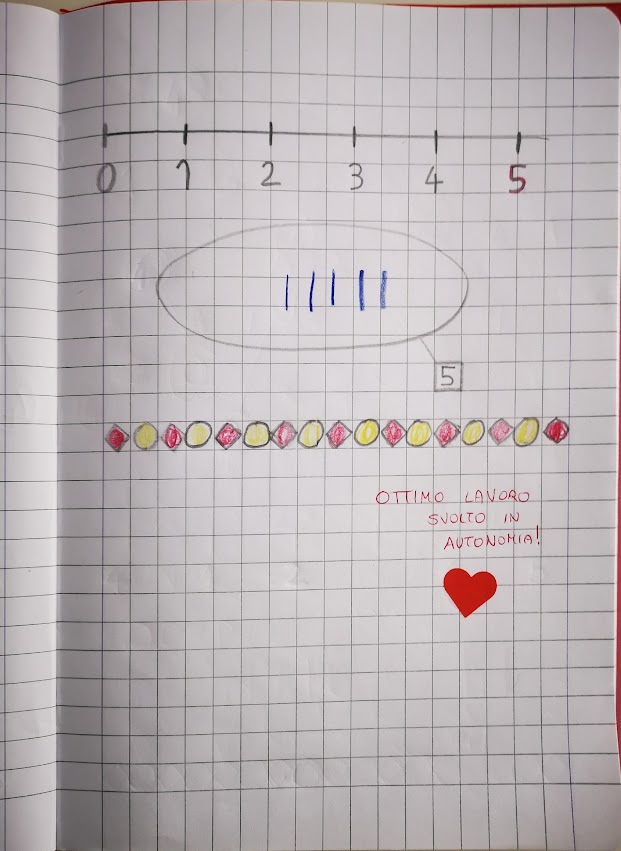 0 1 2 3 4 5
5
OTTIMO LAVORO
SVOLTO IN
AUTONOMIA!